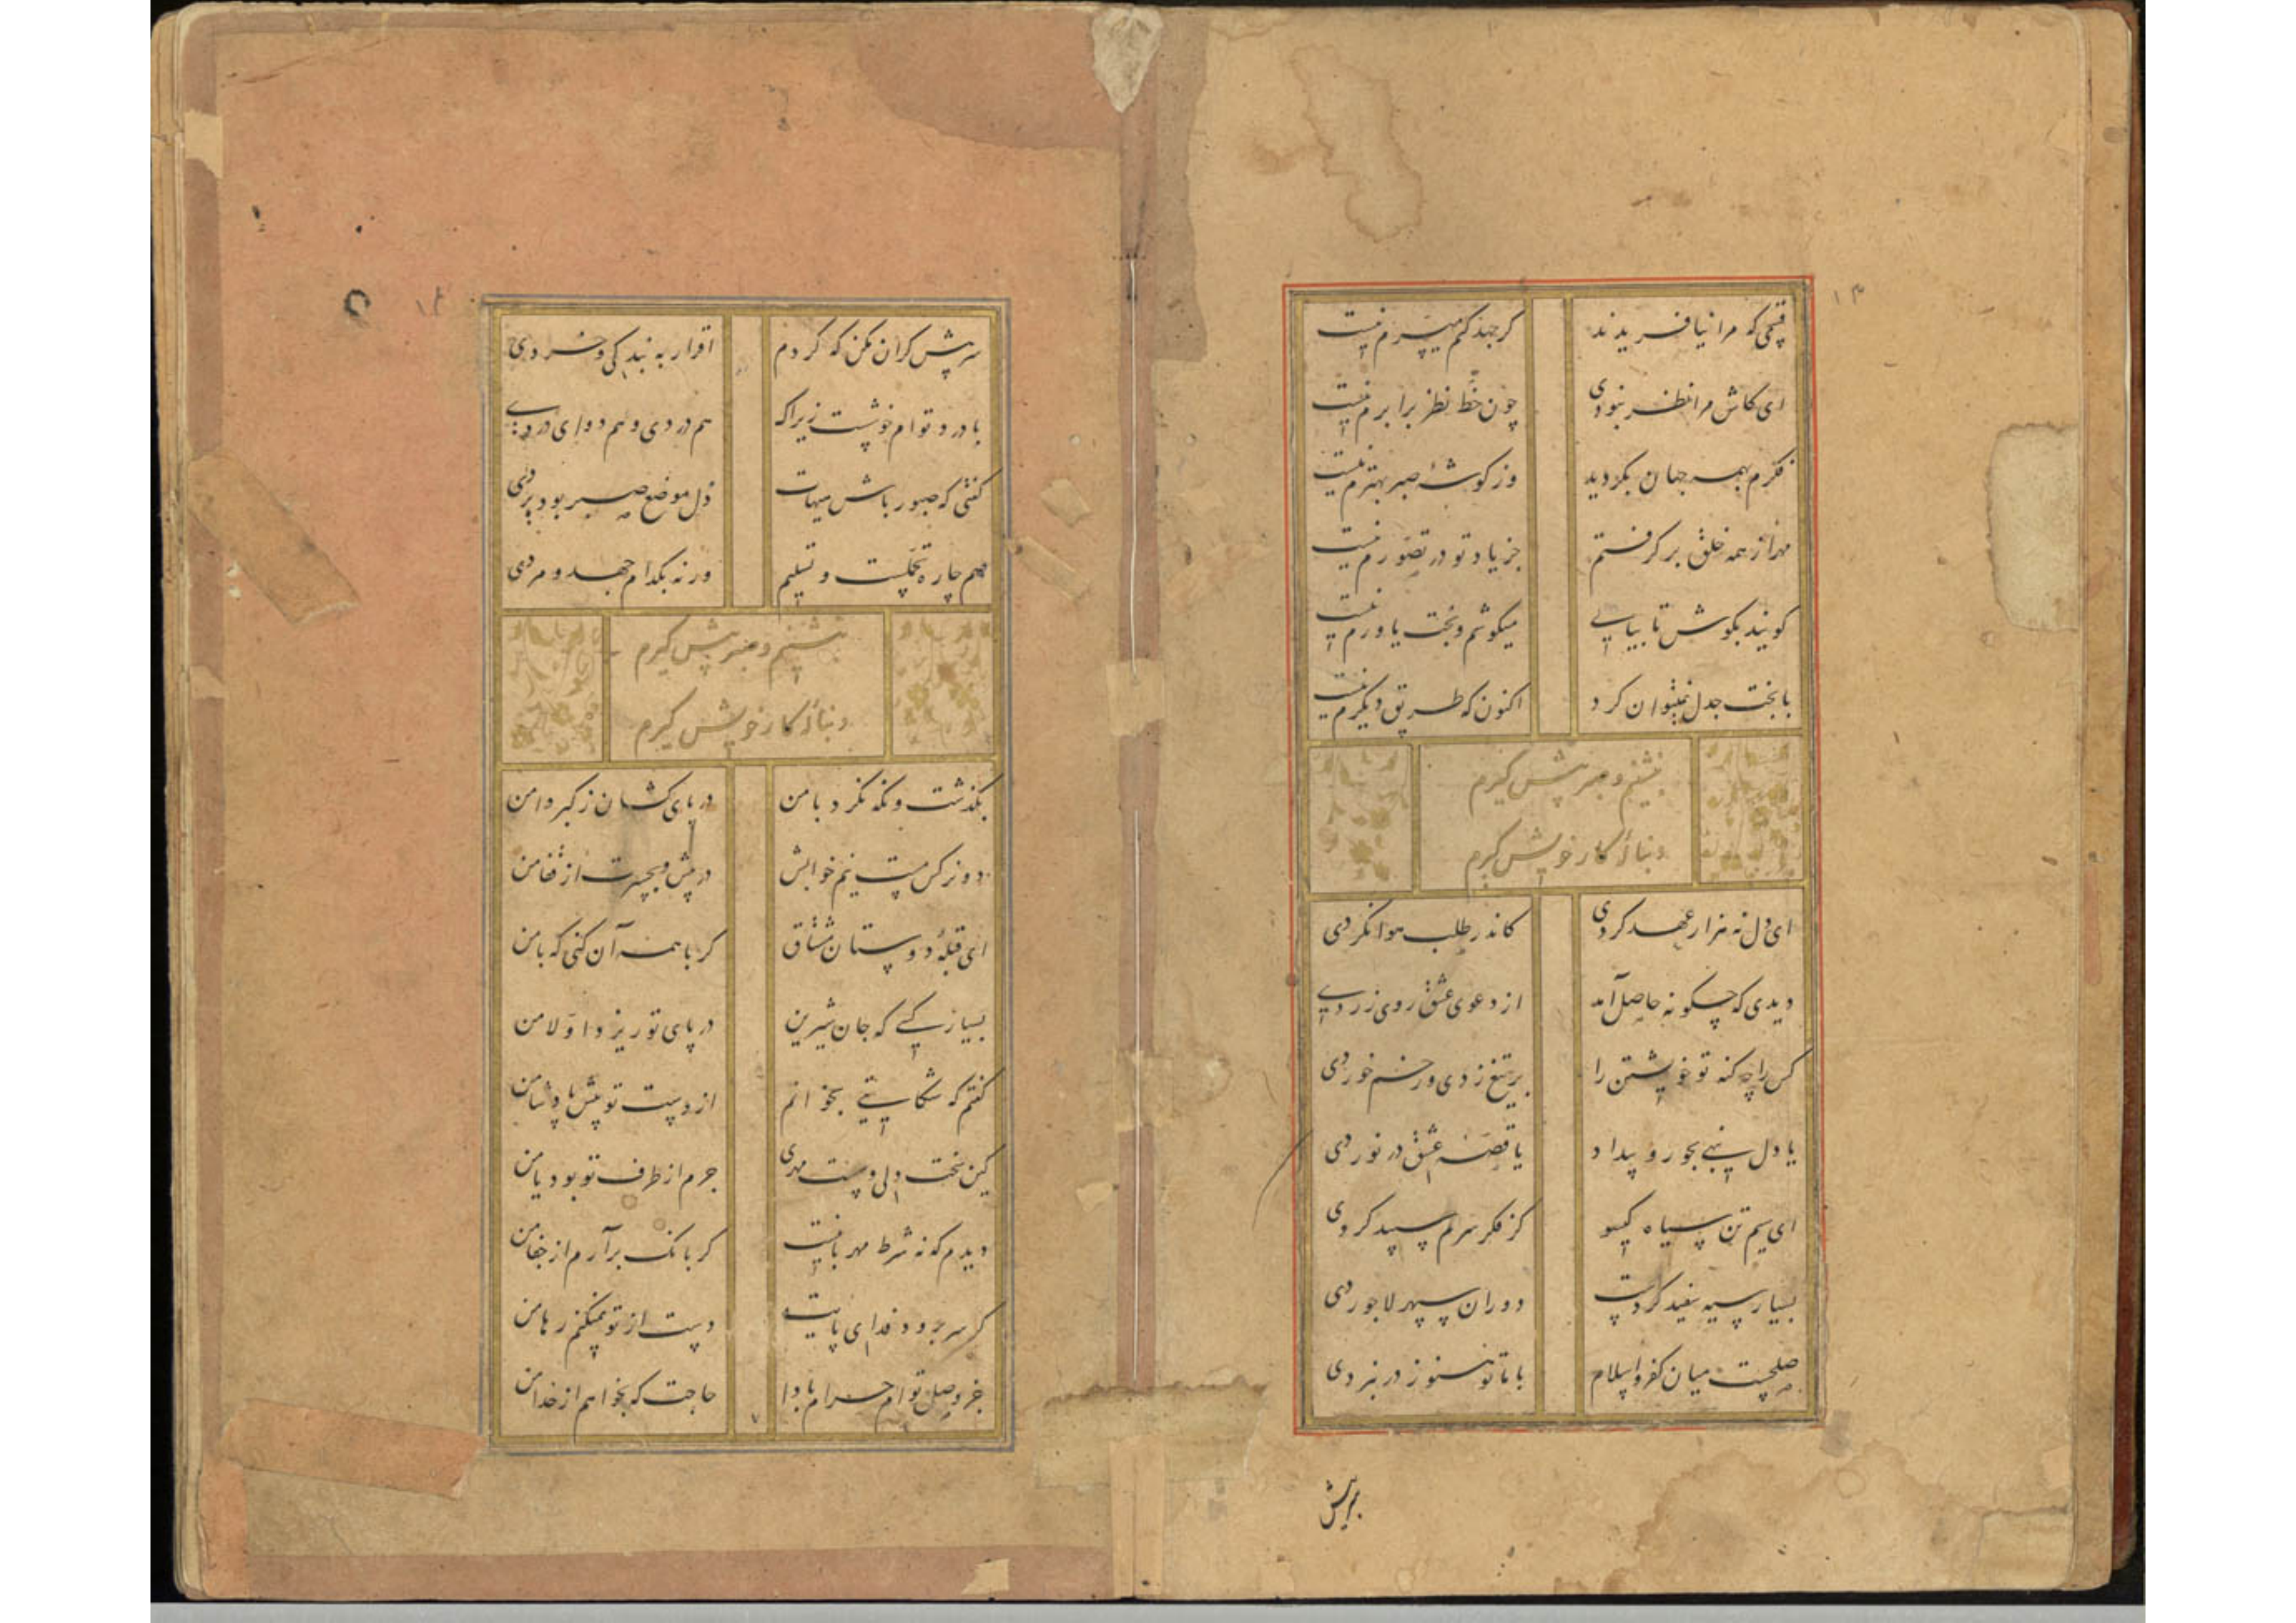 ۱۳
قسمی که مرا نیافریدند گر جهد کنم میسرم نیست
ای کاش مرا نظر نبودی چون حظ نظر برابرم نیست
فکرم بهمه جهان بگردید وز گوشهٔ صبر بهترم نیست
مهر از همه خلق برگرفتم جز یاد تو در تصورم نیست
گویند بکوش تا بیابی میکوشم و بخت یاورم نیست
با بخت جدل نمیتوان کرد اکنون که طریق دیگرم نیست
بنشینم و صبر پیش گیرم
دنبالهٔ کار خویش گیرم
ای دل نه هزار عهد کردی کاندر طلب هوا نگردی
دیدی که چگونه حاصل آمد از دعوی عشق روی زردی
کس را چه گنه تو خویشتن را بر تیغ زدی و زخم خوردی
یا دل بنهی بجور و بیداد یا قصه عشق در نوردی
ای سیم تن سیاه گیسو کز فکر سرم سپید کردی
بسیار سیه سفید کردست دوران سپهر لاجوردی
صلحست میان کفر و اسلام با ما تو هنوز در نبردی
سرپیش گران مکن که کردم اقرار به بندگی و خردی
با درد توام خوشست زیراک هم دردی و هم دوای دردی
گفتی که صبور باش هیهات دل موضع صبر بود بردی
هم چاره تحملست و تسلیم ورنه بکدام جهد و مردی
بنشینم و صبر پیش گیرم
دنبالهٔ کار خویش گیرم
بگذشت و نگه نکرد با من در پای کشان ز کبر دامن
دو نرگس مست نیم خوابش در پیش و بحسرت از قفا من
ای قبلهٔ دوستان مشتاق گر با همه آن کنی که با من
بسیار کسی که جان شیرین در پای تو ریزد اولا من
گفتم که شکایتی بخوانم از دست تو پیش پادشا من
کین سخت دلی و سست مهری جرم از طرف تو بود یا من
دیدم که نه شرط مهربانیست گر بانگ برآرم از جفا من
گر سر برود فدای پایت دست از تو نمیکنم رها من
جز وصل توام حرام بادا حاجت که بخواهم از خدا من